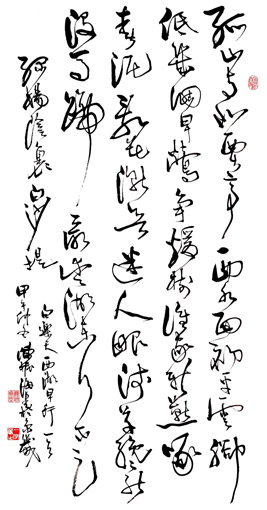 孤山寺北賈亭西水面初平雲腳
低幾處早鶯爭暖樹誰家新燕啄
春泥亂花漸欲迷人眼淺草纔能
沒馬蹄最愛湖東行不足
綠楊陰裏白沙堤
白樂天西湖早行一首
甲午